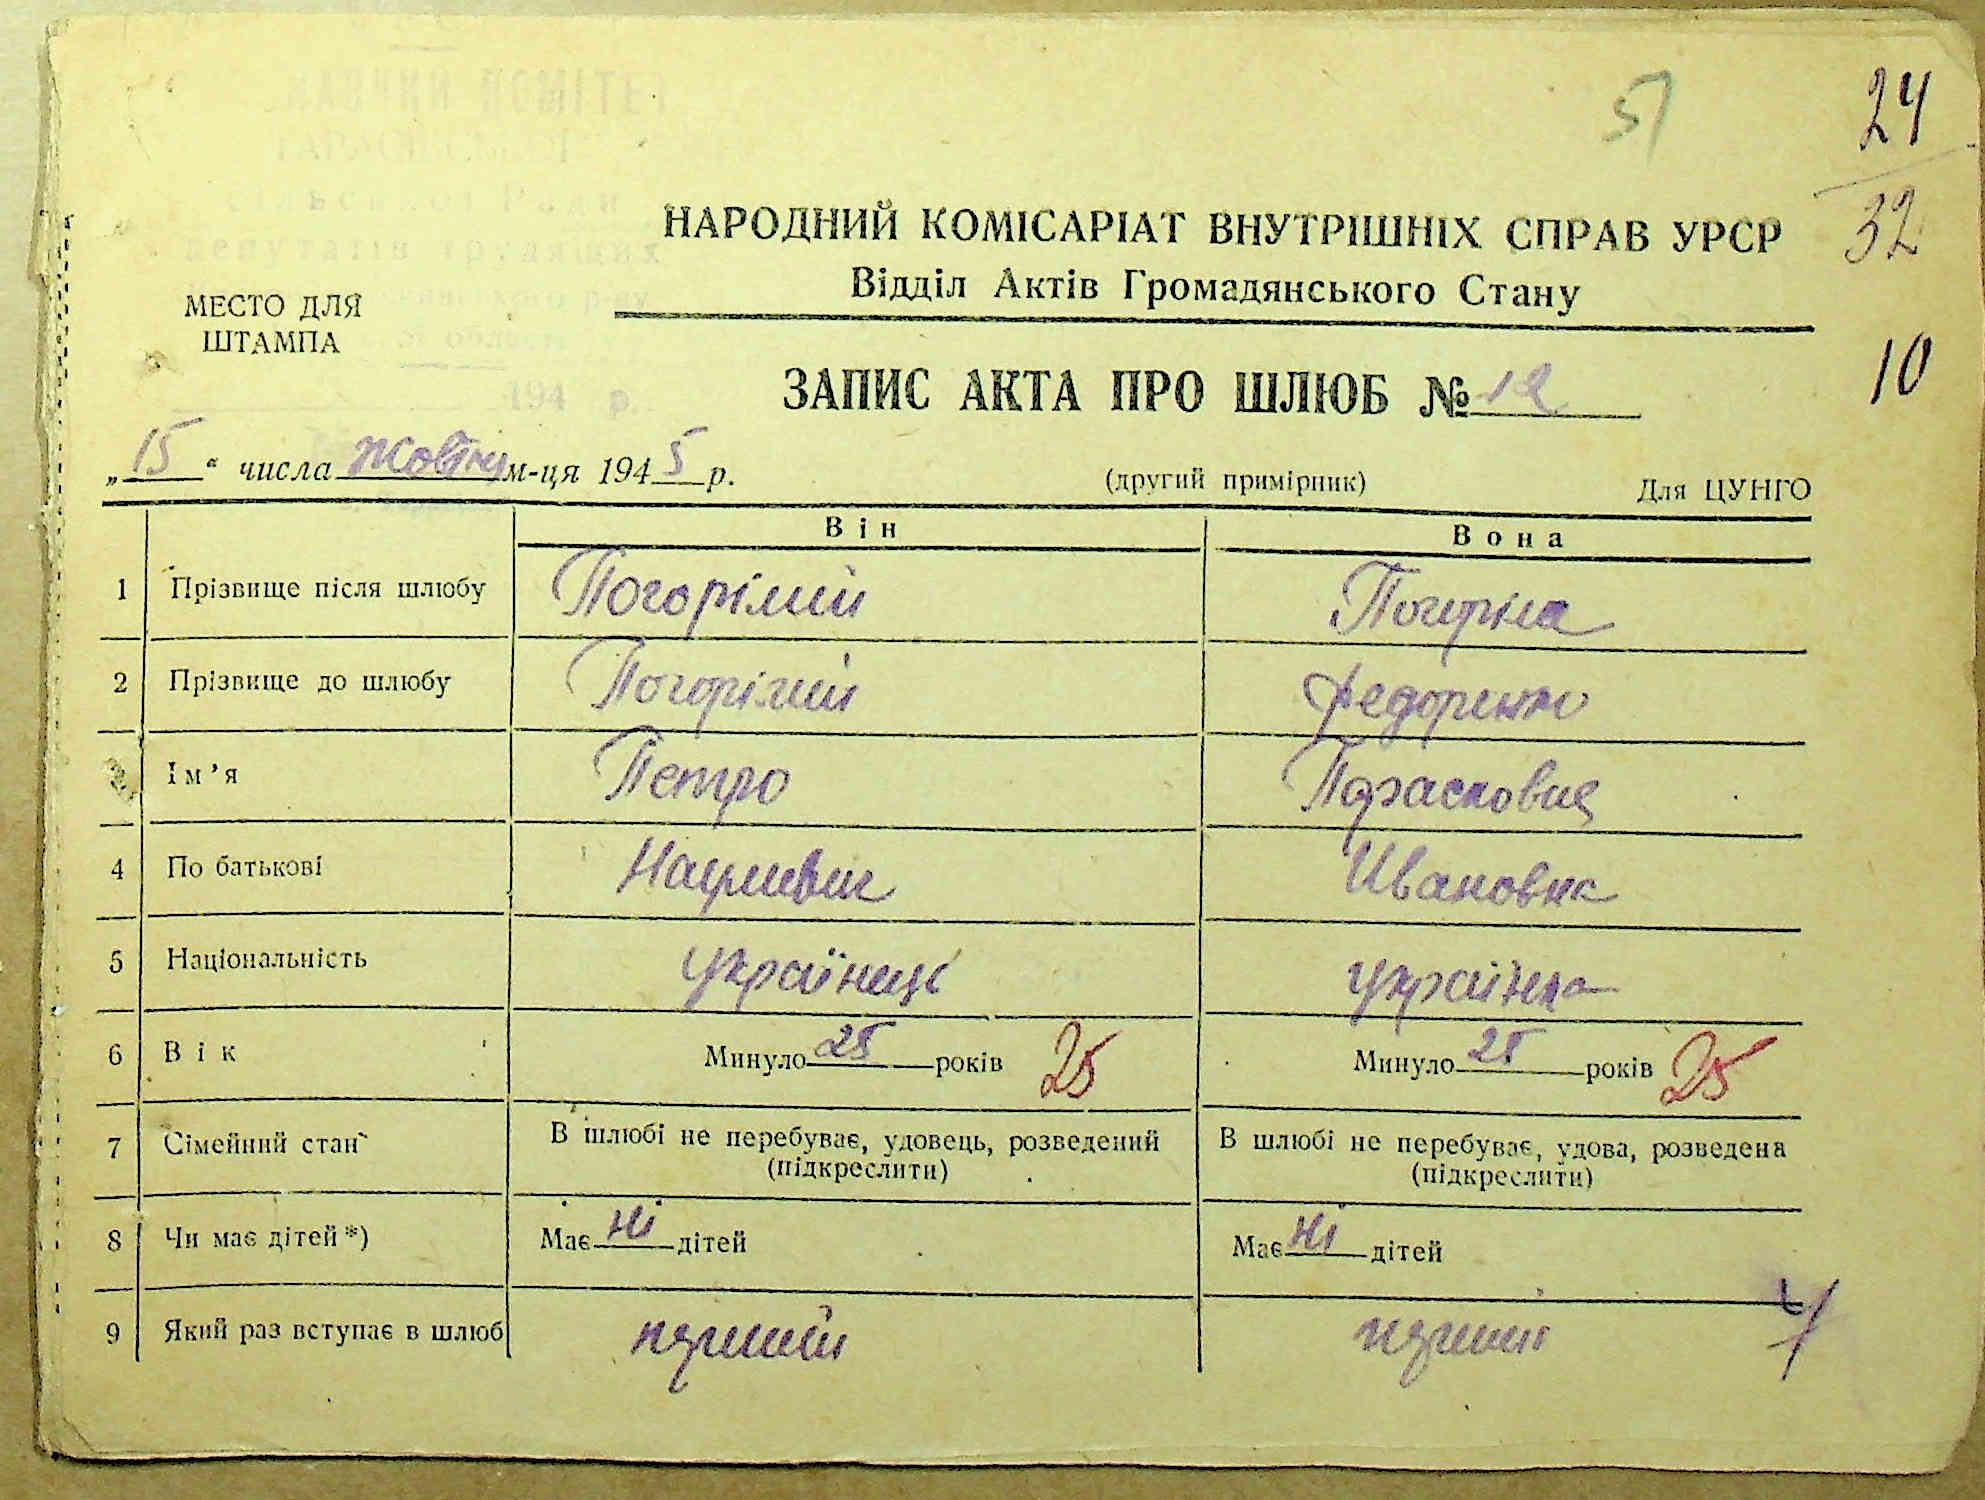 51
24
32
10
НАРОДНИЙ КОМІСАРІАТ ВНУТРІШНІХ СПРАВ УРСР
Відділ Актів Громадянського Стану
МЕСТО ДЛЯ
ШТАМПА
ЗАПИС АКТА ПРО ШЛЮБ № 12
„15“ числа Жовтня м-ця 1945 р.
(другий примірник)
Для ЦУНГО
Він
Вона
1 Прізвище після шлюбу Погорілий Погоріла
2 Прізвище до шлюбу Погорілий Федоренко
3 Ім’я Петро Парасковія
4 По батькові Наумович Ивановна
5 Національність українець українка
6 Вік Минуло 25 років 25 Минуло 25 років 25
7 Сімейний стан В шлюбі не перебуває, удовець, розведений В шлюбі не перебуває, удова, розведена
(підкреслити) (підкреслити)
8 Чи має дітей*) Має ні дітей Має ні дітей
9 Який раз вступає в шлюб перший перший